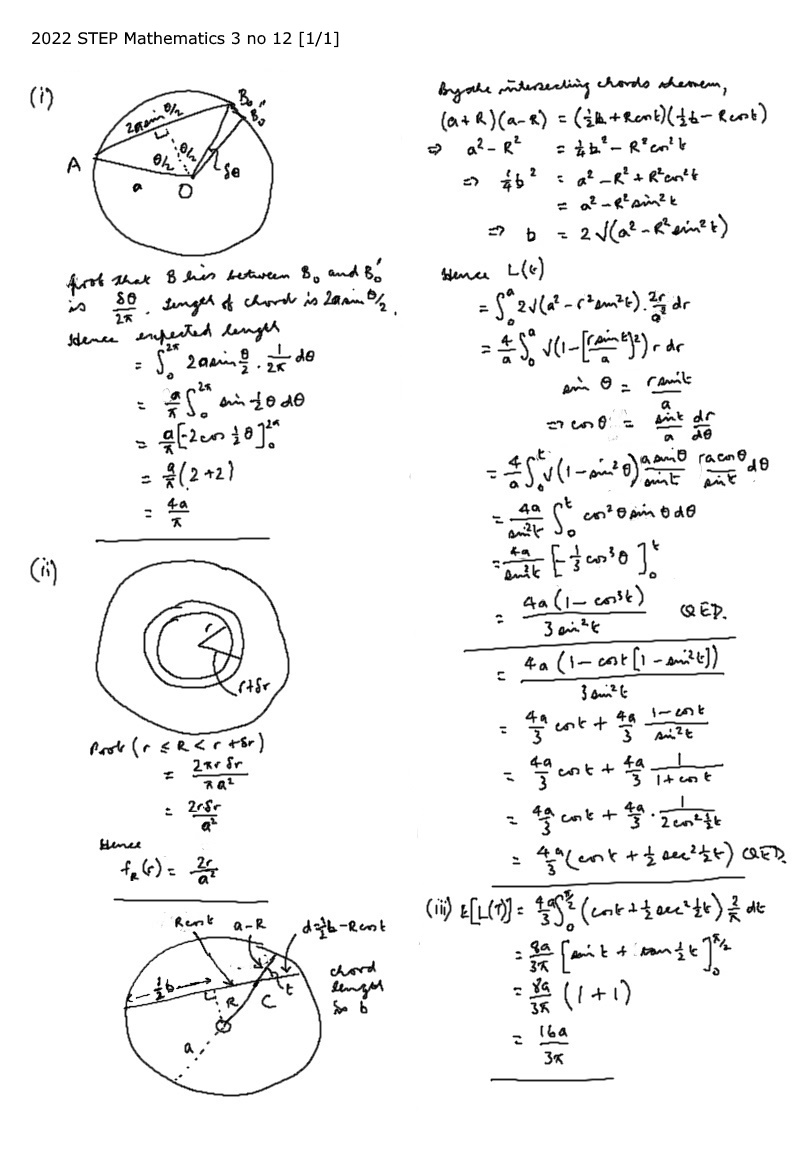 2022 STEP Mathematics 3 no 12 [1/1]
(i)
B₀
B₀'
2a sin θ/2
A
θ/2
θ/2
a
O
δθ
Prob that B lies between B₀ and B₀'
is δθ/2π. Length of chord is 2a sin θ/2.
Hence expected length
= ∫₀^2π 2a sin θ/2 · 1/2π dθ
= a/π ∫₀^2π sin ½θ dθ
= a/π [-2cos ½θ]₀^2π
= a/π (2+2)
= 4a/π
(ii)
r
r+δr
Prob (r ≤ R < r + δr)
= 2πr δr / πa²
= 2rδr / a²
Hence
f_R(r) = 2r/a²
R cos t
a-R
d=½b-R cos t
½b
R
C
t
chord
length
is b
O
a
By the intersecting chords theorem,
(a+R)(a-R) = (½b + R cos t)(½b - R cos t)
⇒ a² - R² = ¼b² - R² cos² t
⇒ ¼b² = a² - R² + R² cos² t
= a² - R² sin² t
⇒ b = 2√(a² - R² sin² t)
Hence L(t)
= ∫₀^a 2√(a² - r² sin² t) · 2r/a² dr
= 4/a ∫₀^a √(1-[r sin t / a]²) r dr
sin θ = r sin t / a
⇒ cos θ = sin t / a dr/dθ
= 4/a ∫₀^t √(1 - sin² θ) a sin θ / sin t a cos θ / sin t dθ
= 4a / sin² t ∫₀^t cos² θ sin θ dθ
= 4a / sin² t [-⅓ cos³ θ]₀^t
= 4a (1 - cos³ t) / 3 sin² t QED.
= 4a (1 - cos t [1 - sin² t]) / 3 sin² t
= 4a/3 cos t + 4a/3 (1 - cos t) / sin² t
= 4a/3 cos t + 4a/3 1 / (1 + cos t)
= 4a/3 cos t + 4a/3 · 1 / 2cos² ½t
= 4a/3 (cos t + ½ sec² ½t) QED.
(iii) E[L(T)] = 4a/3 ∫₀^π/2 (cos t + ½ sec² ½t) 2/π dt
= 8a/3π [sin t + tan ½t]₀^π/2
= 8a/3π (1 + 1)
= 16a/3π